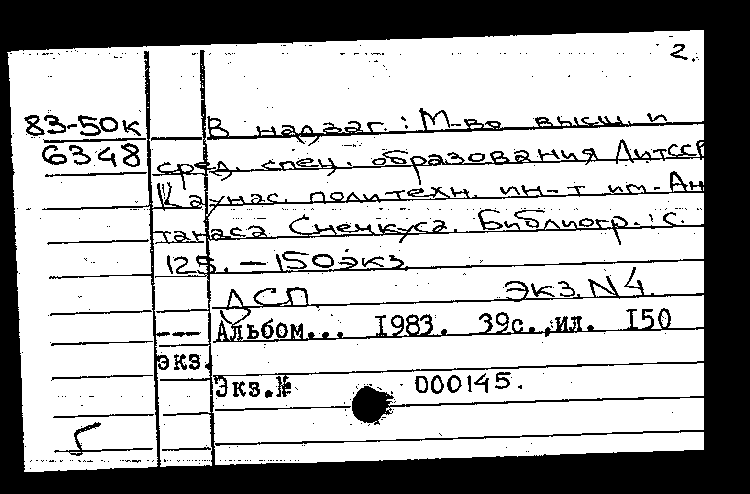 2.
83-50к
6348
В надзаг.: М-во высш. и
сред. спец. образования ЛитССР
Каунас. политехн. ин-т им. Ан
танаса Снечкуса. Библиогр.: с.
125. – 150экз
ДСП экз. N4.
--- Альбом... 1983. 39с.,ил. 150
экз.
Экз.№ 000145.
5